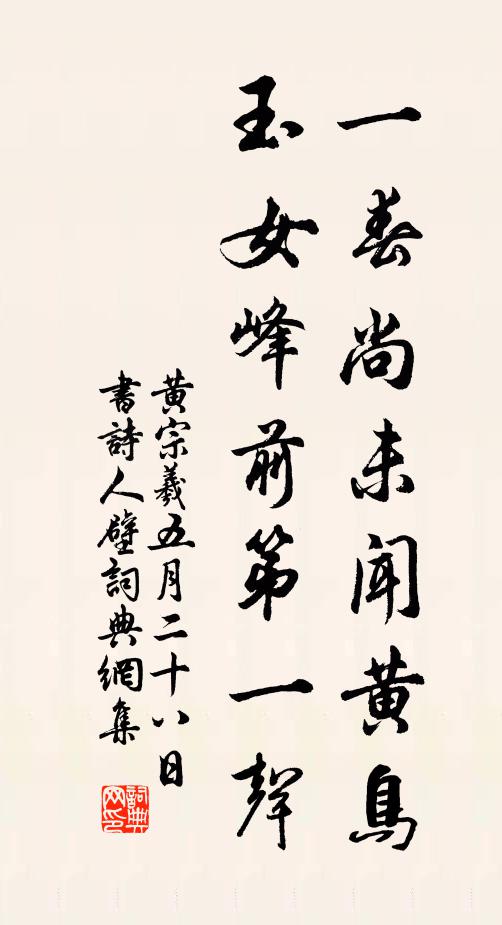 一春尚未聞黄鳥
玉女峰前第一聲
黄宗羲五月二十八日
書詩人壁詞典網集
詞典
网印